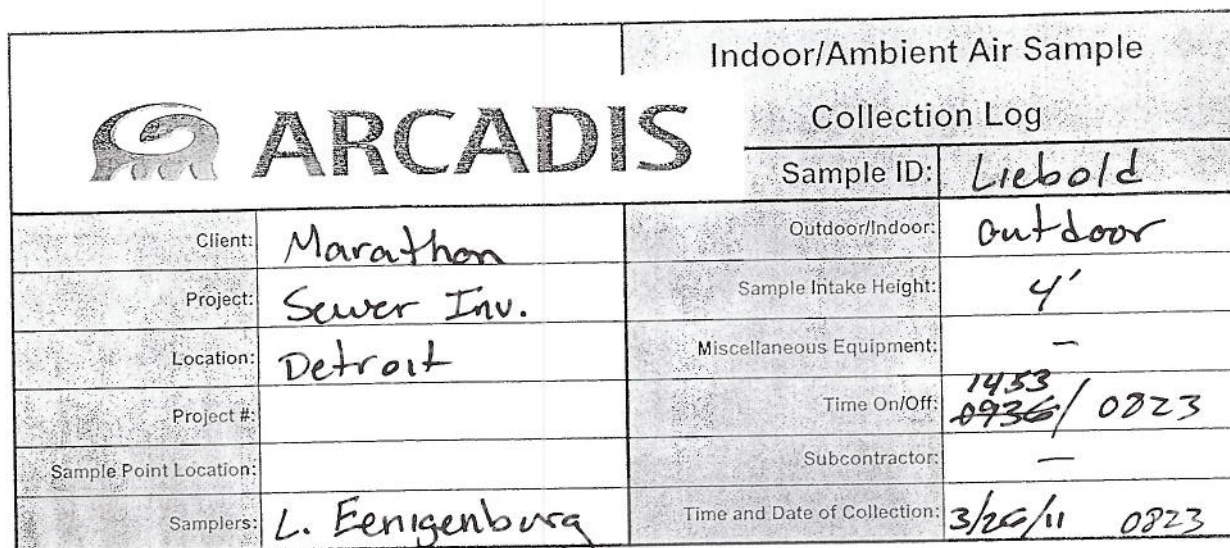 Indoor/Ambient Air Sample
Collection Log
ARCADIS
Sample ID: Liebold
Client: Marathon
Outdoor/Indoor: outdoor
Project: Sewer Inv.
Sample Intake Height: 4'
Location: Detroit
Miscellaneous Equipment: –
Project #:
1453
Time On/Off: 0936/ 0823
Sample Point Location:
Subcontractor: –
Samplers: L. Eenigenburg
Time and Date of Collection: 3/26/11 0823